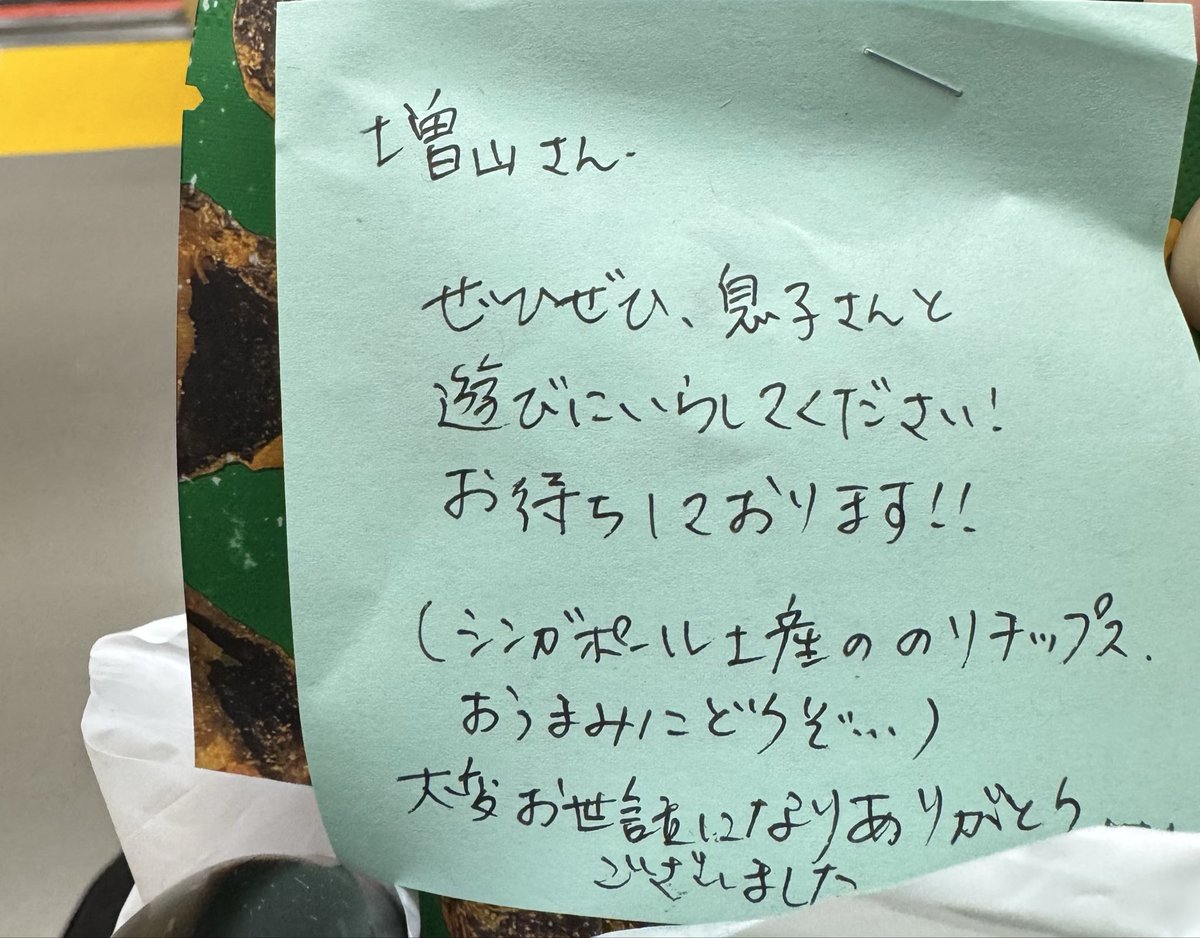 増山さん
ぜひぜひ、息子さんと
遊びにいらしてください!
お待ちしております!!
(シンガポール土産ののりチップス.
おつまみにどうぞ…)
大変お世話になりありがとう
ございました